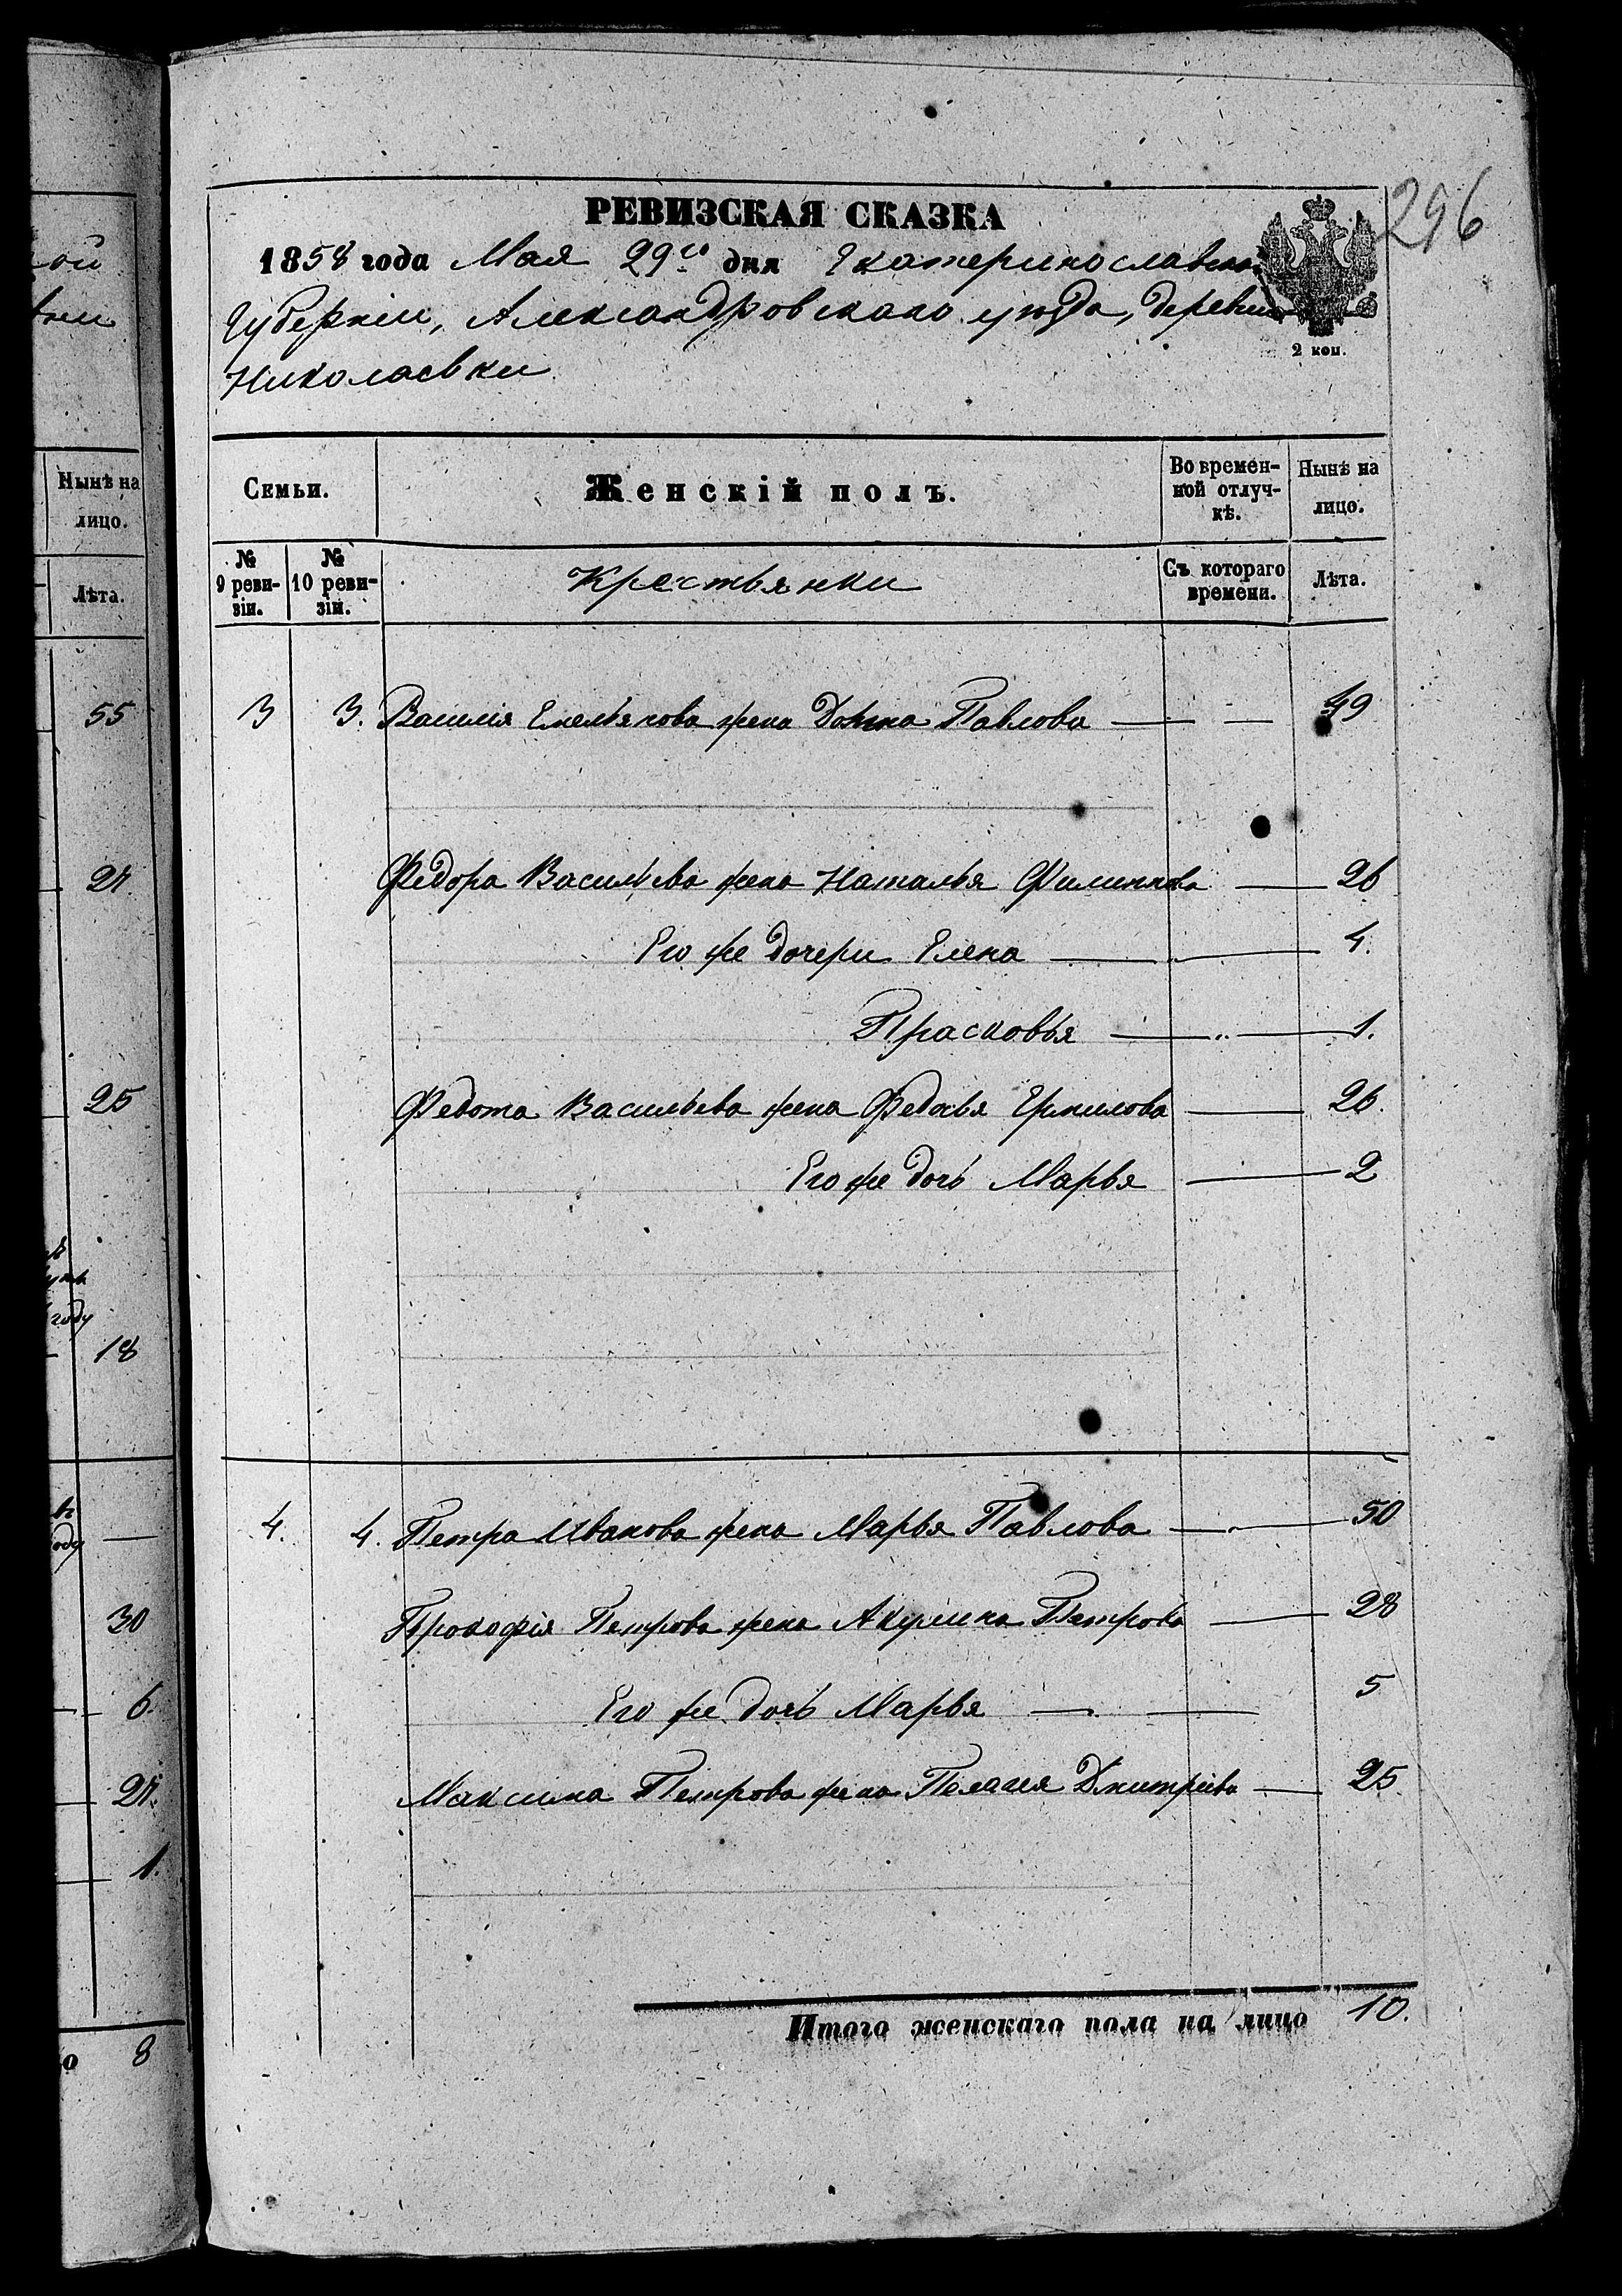 ой
Нынѣ на
лицо.
Лѣта.
55
24.
25
году
18
30
6.
24.
1.
о 8
296
РЕВИЗСКАЯ СКАЗКА
1858 года Мая 29го дня Екатеринославской
2 коп.
Губерніи, Александровскаго уѣзда, деревни
Николаевки
Семьи. Женскій полъ. Во времен-
ной отлуч-
кѣ. Нынѣ на
лицо.
№
9 реви-
зіи. №
10 реви-
зіи. Крестьянки Съ котораго
времени. Лѣта.
3 3. Василія Емельянова жена Домна Павлова — — 49
Федора Васильева жена Наталья Филипова — 26
Его же дочери Елена — 4.
Прасковья — 1.
Федота Васильева жена Федосья Ермилова — 26.
Его же дочь Марья — 2
4. 4. Петра Иванова жена Марья Павлова — 50
Прокофія Петрова жена Акулина Петрова — 28
Его же дочь Марья — — 5
Максима Петрова жена Пелагея Дмитріева — 25
Итого женскаго пола на лицо 10.